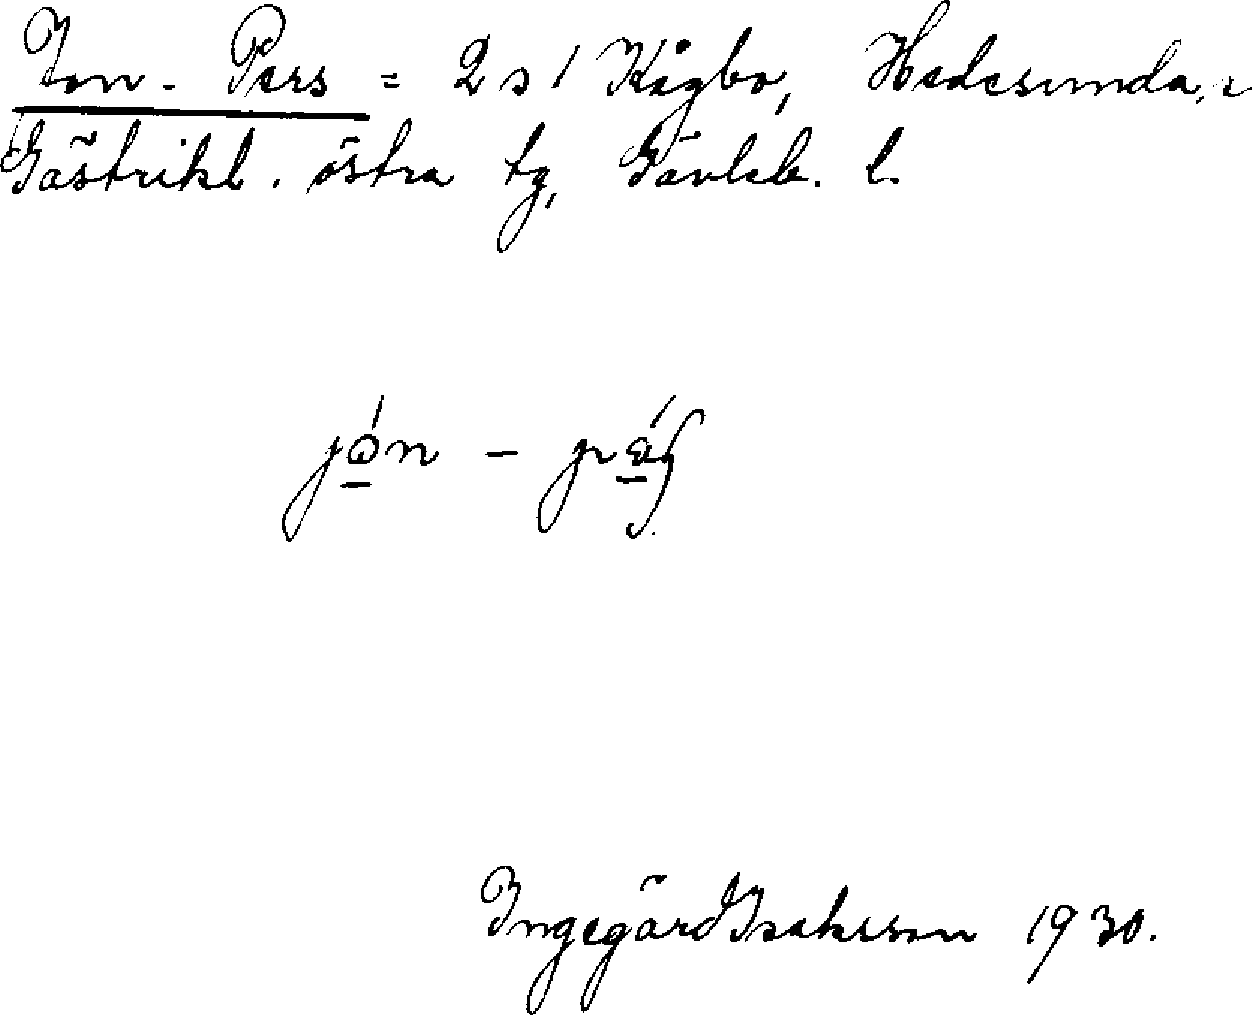 Jon-Pers = 2 s 1 Kågbo, Hedesunda, 
Gästrikl. östra tg, Gävleb. l.
Ingegärd Isaksson 1930.